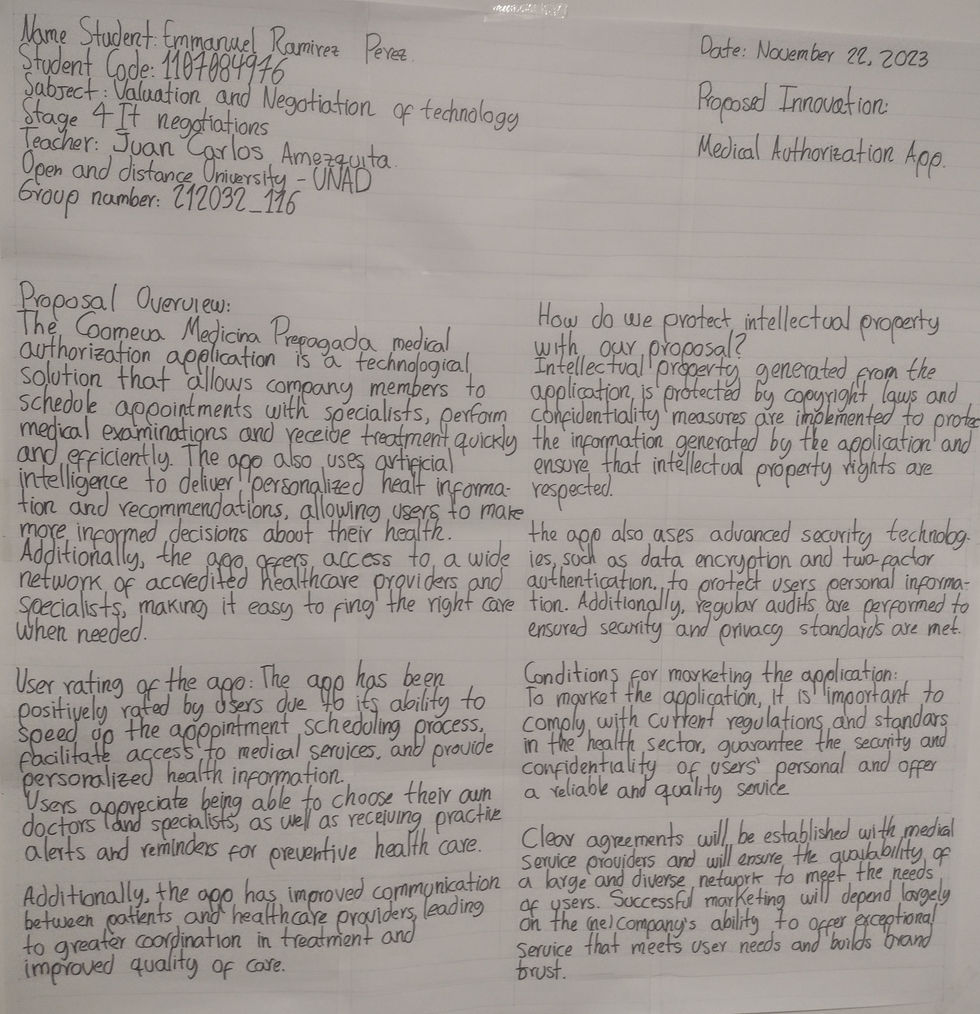 Name Student: Emmanuel Ramirez Perez.
Student Code: 1107084976
Sabject: Valuation and Negotiation of technology
Stage 4 It negotiations
Teacher: Juan Carlos Amezquita.
Open and distance University - UNAD
Group namber: 212032_116
Date: November 22, 2023
Proposed Innovation:
Medical Authorization App.
Proposal Overview:
The Coomeva Medicina Prepagada medical
authorization application is a technological
solution that allows company members to
schedole appointments with specialists, perform
medical examinations and receibe treatment quickly
and efficiently. The app also uses artificial
intelligence to deliver personalized healt informa-
tion and recommendations, allowing users to make
more informed decisions about their health.
Additionally, the app offers access to a wide
network of accredited healthcare providers and
specialists, making it easy to fing the right care
when needed.
User rating of the app: The app has been
positively rated by users due to its ability to
speed up the appointment scheduling process,
facilitate access to medical services, and provide
personalized health information.
Users appreciate being able to choose their own
doctors and specialists, as well as receiving practive
alerts and reminders for preventive health care.
Additionally, the app has improved communication
between patients and healthcare providers, leading
to greater coordination in treatment and
improved quality of care.
How do we protect intellectual property
with our proposal?
Intellectual property generated from the
application, is protected by copyright, laws and
confidentiality measures are implemented to protec
the information generated by the application and
ensure that intellectual property rights are
respected.
the app also ases advanced security technolog-
ies, such as data encryption and two-factor
authentication, to protect users personal informa-
tion. Additionally, regular audits are performed to
ensured security and privacy standards are met.
Conditions for marketing the application:
To market the application, it is important to
comply with current regulations, and standars
in the health sector, guarantee the security and
confidentiality of users' personal and offer
a reliable and quality service
Clear agreements will be established with medial
service providers and will ensure the availability of
a large and diverse network to meet the needs
of users. Successful marketing will depend largely
on the (ne) Company's ability to offer exceptional
service that meets user needs and builds brand
trust.